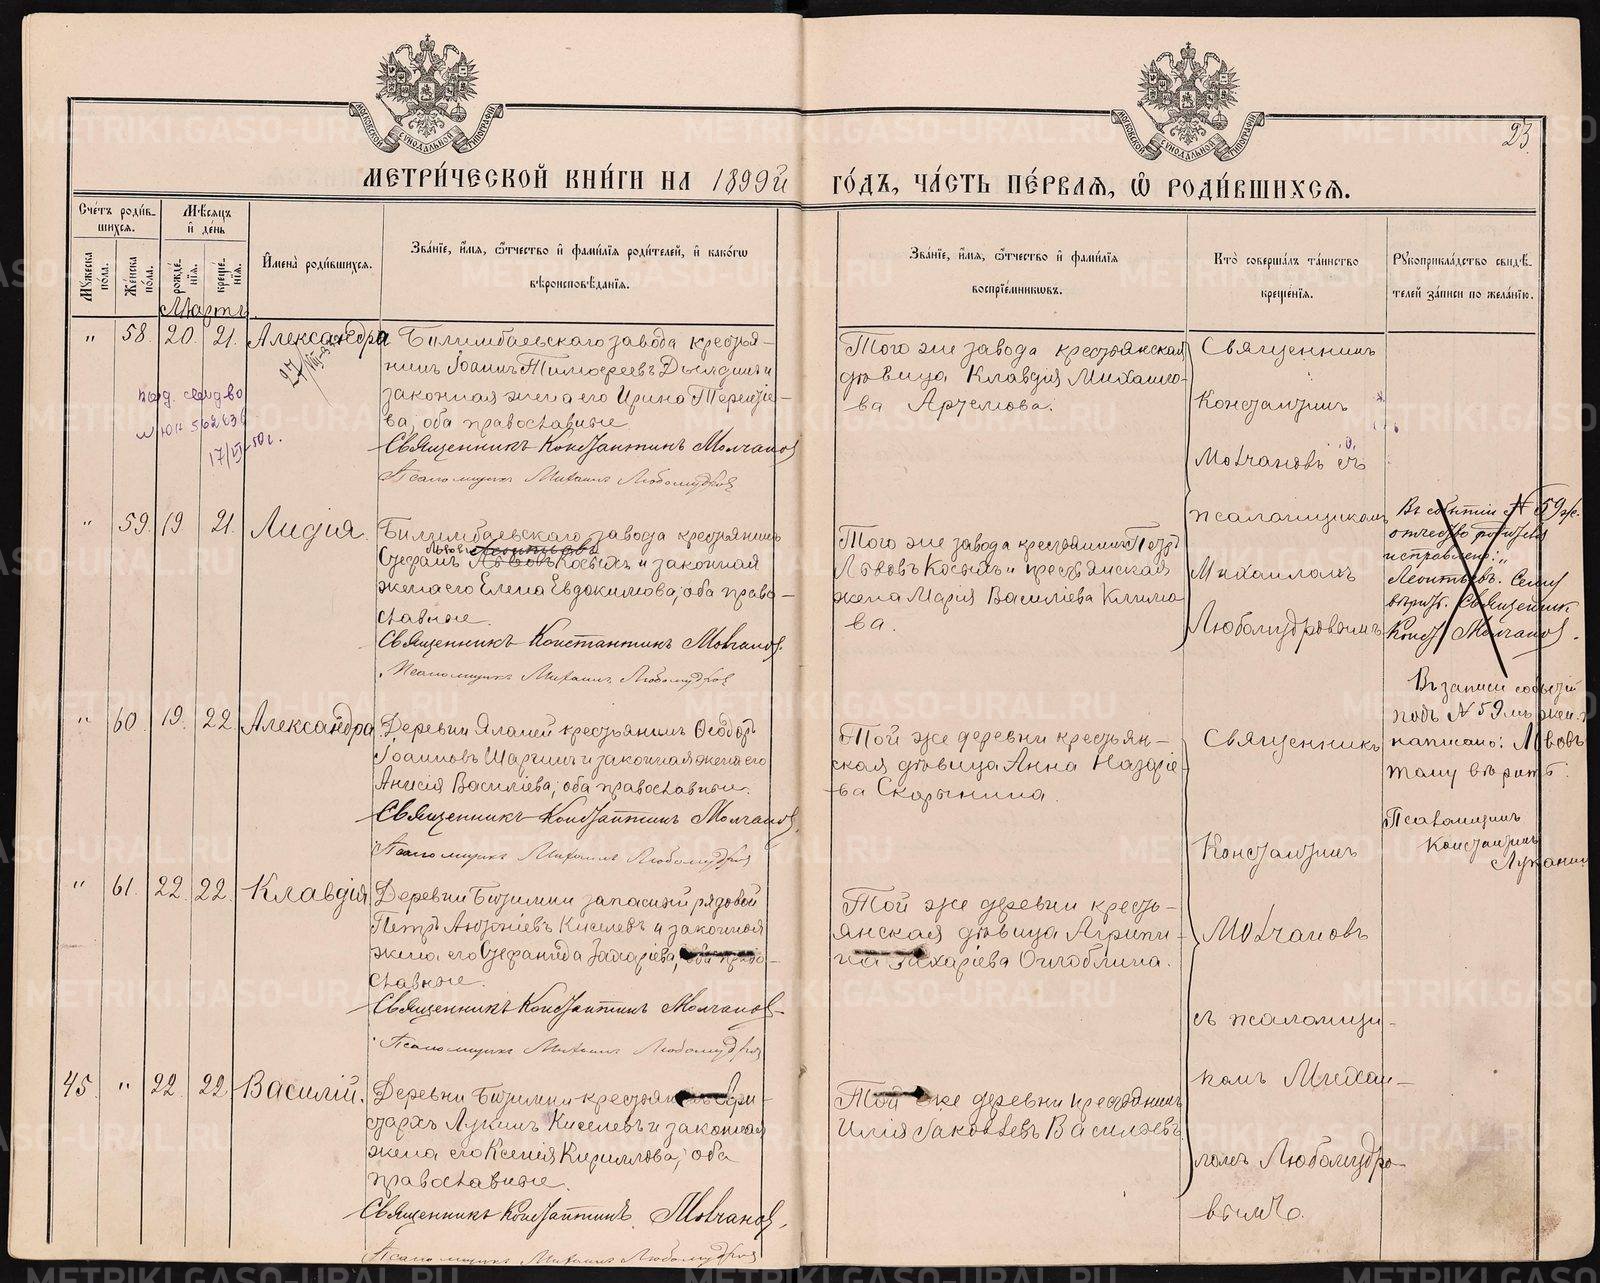 23.
МЕТРИ́ЧЕСКОЙ КНИ́ГИ НА 1899й ГО́ДЪ, ЧА́СТЬ ПЕ́РВАѦ, Ѡ҆ РОДИ́ВШИХСѦ.
Сче́тъ роди́в-
шихсѧ.
Мꙋ́жеска по́ла.
Же́нска по́ла.
Мѣ́сѧцъ
и҆ де́нь
рожде́-
нїѧ.
креще́-
нїѧ.
И҆мена̀ роди́вшихсѧ.
Зва́нїе, и҆́мѧ, ѻ҆́тчество и҆ фами́лїѧ роди́телей, и҆ како́гѡ
вѣроисповѣ́данїѧ.
Зва́нїе, и҆́мѧ, ѻ҆́тчество и҆ фами́лїѧ
воспрїе́мникѡвъ.
Кто̀ соверша́лъ та́инство
креще́нїѧ.
Рꙋкоприкла́дство свидѣ́-
телей за́писи по жела́нїю.
Мартъ.
" 58 20 21. Александра
Билимбаевскаго завода крестья-
нинъ Іоаннъ Тимофеевъ Дылдинъ и
законная жена его Ирина Терентіе-
ва, оба православные
Священникъ Константинъ Молчановъ
Псаломщикъ Михаилъ Любомудровъ
Того же завода крестьянская
дѣвица Клавдія Михайло-
ва Артемова.
Священникъ
Константинъ
Молчановъ съ
псаломщикомъ
Михаиломъ
Любомудровымъ
" 59. 19 21. Лидія.
Билимбаевскаго завода крестьянинъ
Львовъ
Стефанъ Косыхъ и законная
жена его Елена Евдокимова, оба право-
славные.
Священникъ Константинъ Молчановъ.
Псаломщикъ Михаилъ Любомудровъ
Того же завода крестьянинъ Петръ
Львовъ Косыхъ и крестьянская
жена Марія Василіева Климо-
ва.
Въ событіи № 59 ж.
отчество родителя
исправлено:
Леонтьевъ. Сему
вѣрить. Священник.
Конст. Молчановъ.
Въ записи событій
подъ № 59мъ жен.
написано: Львовъ
тому вѣрить.
Псаломщикъ
Константинъ
" 60. 19. 22. Александра
Деревни Яланей крестьянинъ Ѳеодоръ
Іоанновъ Шаргинъ и законная жена его
Анисія Василіева, оба православные.
Священникъ Константинъ Молчановъ.
Псаломщикъ Михаилъ Любомудровъ
Той же деревни крестьян-
ская дѣвица Анна Назаріе-
ва Скорынина.
Священникъ
Константинъ
Молчановъ
съ псаломщи-
комъ Михаи-
ломъ Любомудро-
вымъ.
" 61. 22. 22. Клавдія
Деревни Битимки запасный рядовой
Петръ Антоніевъ Киселевъ и законная
жена его Стефанида Захаріева, оба право-
славные.
Священникъ Константинъ Молчановъ
Псаломщикъ Михаилъ Любомудровъ
Той же деревни кресть-
янская дѣвица Агрипи-
на Захаріева Оглоблина.
45. " 22. 22. Василій.
Деревни Битимки крестьянинъ Ари-
стархъ Лукинъ Киселевъ и законная
жена его Ксенія Кириллова, оба
православные.
Священникъ Константинъ Молчановъ.
Псаломщикъ Михаилъ Любомудровъ
Той же деревни крестьянинъ
Илія Іаковлевъ Василевъ
METRIKI.GASO-URAL.RU